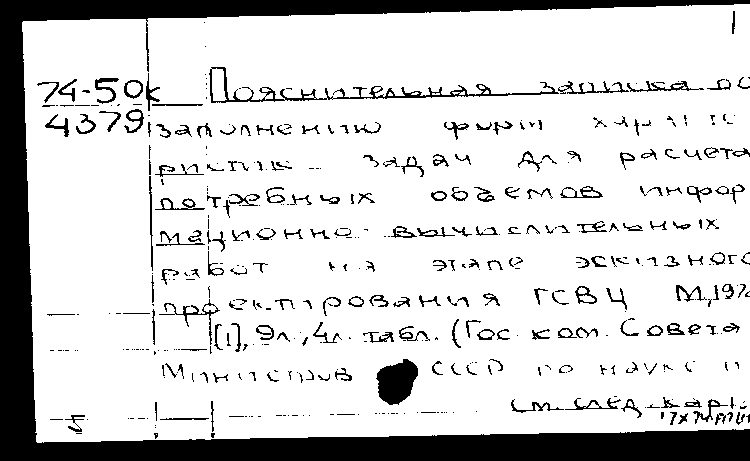 1
74-50к Пояснительная записка по
4379 заполнению форм характе
ристик задач для расчета
потребных объемов инфор
мационно-вычислительных
работ на этапе эскизного
проектирования ГСВЦ М, 197
[1], 9л, 4л. табл. (Гос. ком. Совета
Министров СССР по науке и
см. след. карт.
5